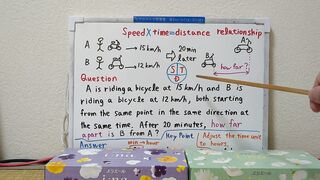 Speed X time = distance relationship
A → 15km/h
20min later
A
B → 12km/h
B
how far?
S T
D
Question
A is riding a bicycle at 15km/h and B is
riding a bicycle at 12km/h, both starting
from the same point in the same direction
at the same time. After 20 minutes, how far
apart is B from A?
Key Point / Adjust the time unit
to hours.
Answer
min → hour